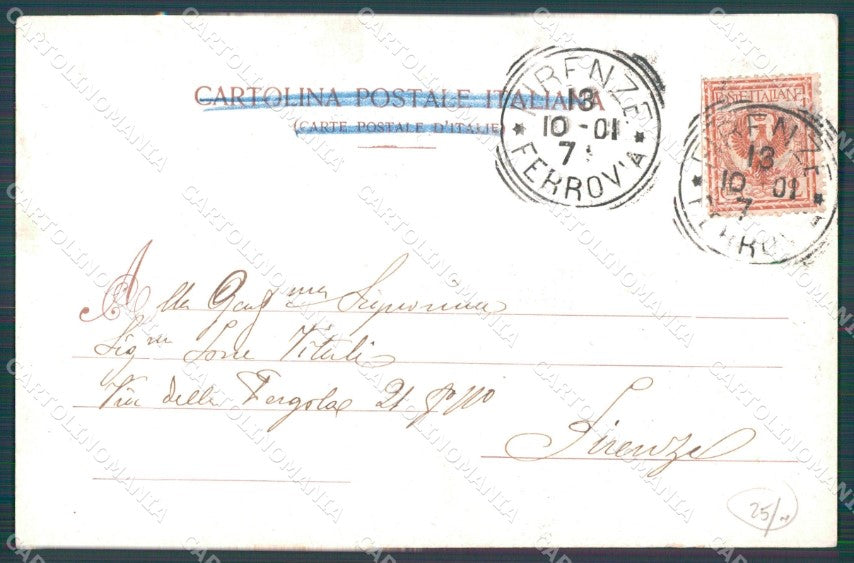 CARTOLINA POSTALE ITALIANA
(CARTE POSTALE D'ITALIE)
FIRENZE
13
10-01
7
FERROVIA
POSTE ITALIANE
FIRENZE
13
10 01
7
FERROVIA
Alla
Sig.na Vitali
Via della Pergola 21 p.mo
Firenze
25/-
CARTOLINOMANIA